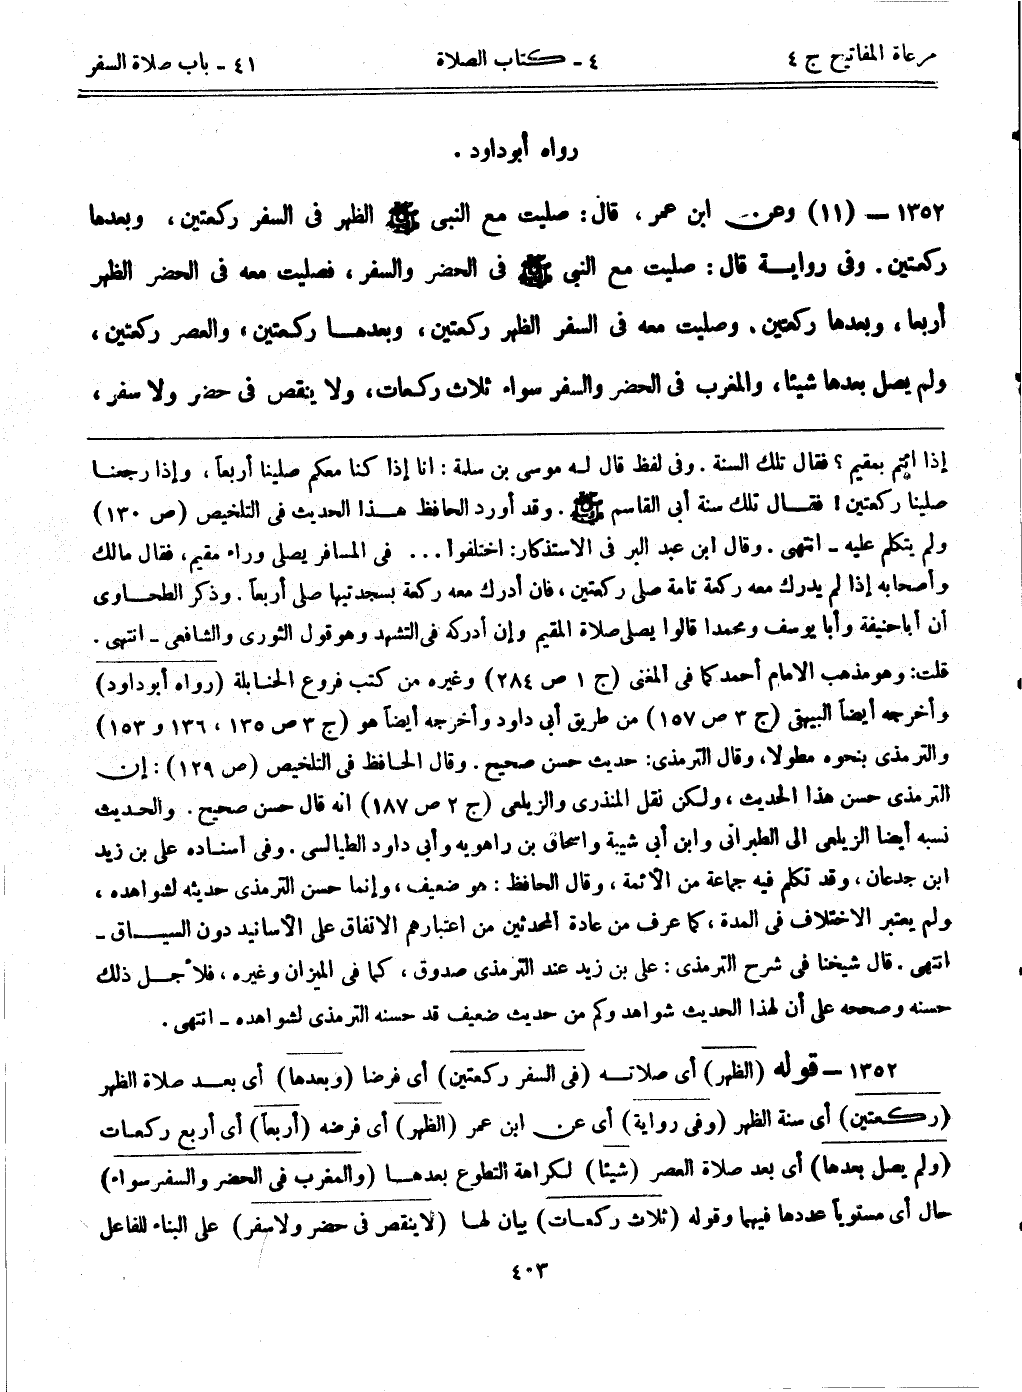 مرعاة المفاتيح ج ٤
٤ - كتاب الصلاة
٤١ - باب صلاة السفر
رواه أبوداود .
١٣٥٢ – (١١) وعن ابن عمر ، قال : صليت مع النبى ﷺ الظهر فى السفر ركعتين ، وبعدها
ركعتين . وفى رواية قال : صليت مع النبى ﷺ فى الحضر والسفر ، فصليت معه فى الحضر الظهر
أربعا ، وبعدها ركعتين . وصليت معه فى السفر الظهر ركعتين ، وبعدها ركعتين ، والعصر ركعتين ،
ولم يصل بعدها شيئا ، والمغرب فى الحضر والسفر سواء ثلاث ركعات ، ولا ينقص فى حضر ولا سفر ،
إذا ائتم بمقيم ؟ فقال تلك السنة . وفى لفظ قال له موسى بن سلمة : انا إذا كنا معكم صلينا أربعاً ، وإذا رجعنا
صلينا ركعتين ! فقال تلك سنة أبى القاسم ﷺ . وقد أورد الحافظ هذا الحديث فى التلخيص (ص ١٣٠)
ولم يتكلم عليه - انتهى . وقال ابن عبد البر فى الاستذكار : اختلفوا ... فى المسافر يصلى وراء مقيم ، فقال مالك
وأصحابه إذا لم يدرك معه ركعة تامة صلى ركعتين ، فان أدرك معه ركعة بسجدتيها صلى أربعاً . وذكر الطحاوى
أن أباحنيفة وأبا يوسف ومحمدا قالوا يصلى صلاة المقيم وإن أدركه فى التشهد وهو قول الثورى والشافعى - انتهى .
قلت : وهو مذهب الامام أحمد كما فى المغنى (ج ١ ص ٢٨٤) وغيره من كتب فروع الحنابلة (رواه أبوداود)
وأخرجه أيضاً البيهقى (ج ٣ ص ١٥٧) من طريق أبى داود وأخرجه أيضاً هو (ج ٣ ص ١٣٥ ، ١٣٦ و ١٥٣)
والترمذى بنحوه مطولا ، وقال الترمذى : حديث حسن صحيح . وقال الحافظ فى التلخيص (ص ١٢٩) : إن
الترمذى حسن هذا الحديث ، ولكن نقل المنذرى والزيلعى (ج ٢ ص ١٨٧) انه قال حسن صحيح . والحديث
نسبه أيضا الزيلعى الى الطبرانى وابن أبى شيبة واسحاق بن راهويه وأبى داود الطيالسى . وفى اسناده على بن زيد
ابن جدعان ، وقد تكلم فيه جماعة من الأئمة ، وقال الحافظ : هو ضعيف ، وإنما حسن الترمذى حديثه لشواهده ،
ولم يعتبر الاختلاف فى المدة ، كما عرف من عادة المحدثين من اعتبارهم الاتفاق على الأسانيد دون السياق -
انتهى . قال شيخنا فى شرح الترمذى : على بن زيد عند الترمذى صدوق ، كما فى الميزان وغيره ، فلأجل ذلك
حسنه وصححه على أن لهذا الحديث شواهد وكم من حديث ضعيف قد حسنه الترمذى لشواهده - انتهى .
١٣٥٢ – قوله (الظهر) أى صلاته (فى السفر ركعتين) أى فرضا (وبعدها) أى بعد صلاة الظهر
(ركعتين) أى سنة الظهر (وفى رواية) أى عن ابن عمر (الظهر) أى فرضه (أربعاً) أى أربع ركعات
(ولم يصل بعدها) أى بعد صلاة العصر (شيئا) لكراهة التطوع بعدها (والمغرب فى الحضر والسفر سواء)
حال أى مستوياً عددها فيهما وقوله (ثلاث ركعات) بيان لها (لاينقص فى حضر ولاسفر) على البناء للفاعل
٤٠٣